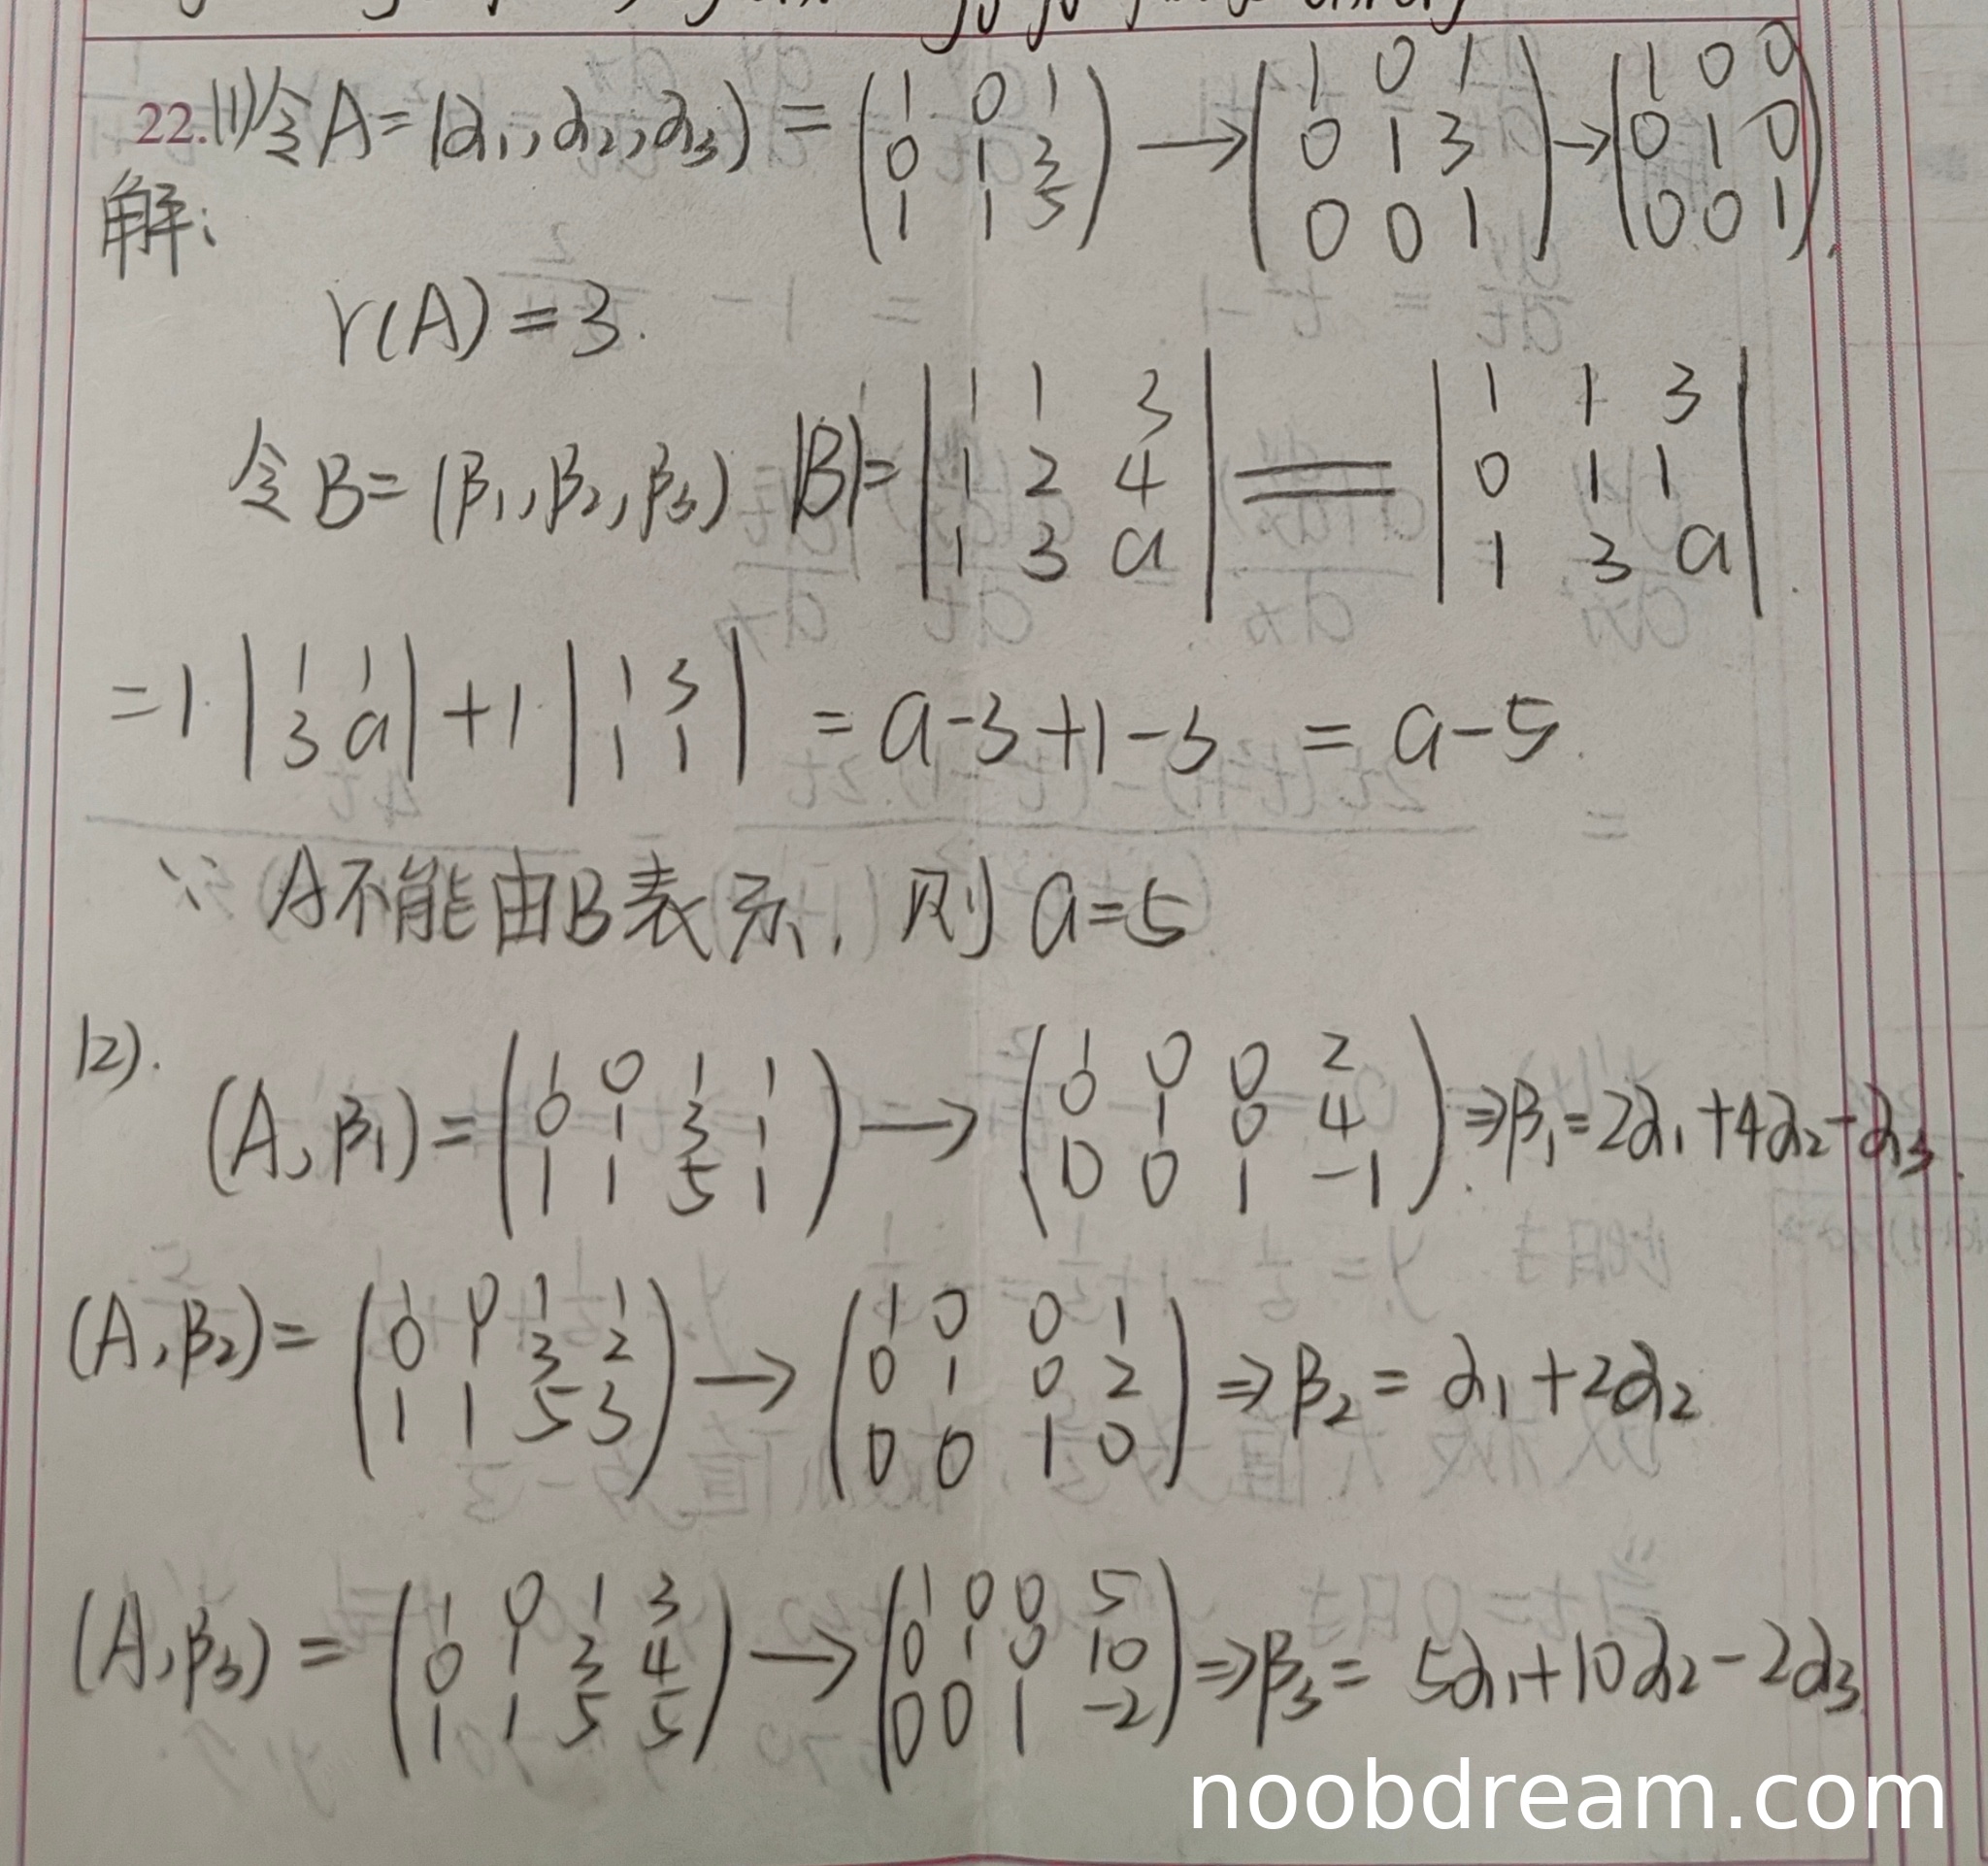 22.(1)令A=(α₁,α₂,α₃) = (1 0 1; 0 1 3; 1 1 5) → (1 0 1; 0 1 3; 0 0 1) → (1 0 0; 0 1 0; 0 0 1).
解:
r(A)=3.
令B=(β₁,β₂,β₃) |B|= |1 1 3; 1 2 4; 1 3 a| = |1 1 3; 0 1 1; 1 3 a|.
=1·|1 1; 3 a|+1·|1 3; 1 1| = a-3+1-3 = a-5.
∵ A不能由B表示, 则 a=5
(2).
(A,β₁)= (1 0 1 1; 0 1 3 1; 1 1 5 1) → (1 0 0 2; 0 1 0 4; 0 0 1 -1). ⇒β₁=2α₁+4α₂-α₃.
(A,β₂)= (1 0 1 1; 0 1 3 2; 1 1 5 3) → (1 0 0 1; 0 1 0 2; 0 0 1 0) ⇒β₂= α₁+2α₂
(A,β₃) = (1 0 1 3; 0 1 3 4; 1 1 5 5) → (1 0 0 5; 0 1 0 10; 0 0 1 -2) ⇒β₃= 5α₁+10α₂-2α₃
noobdream.com